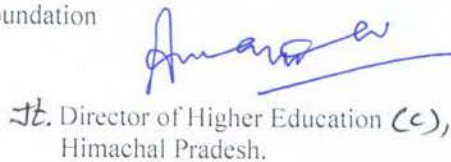 oundation
Jt. Director of Higher Education (C),
Himachal Pradesh.